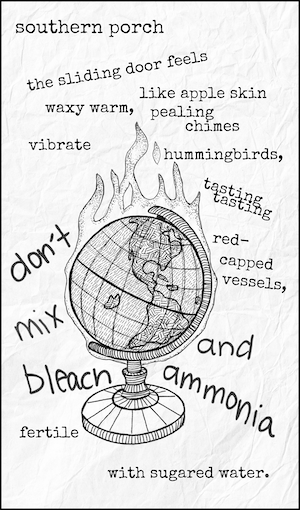 southern porch
the sliding door feels
like apple skin
waxy warm,
pealing
chimes
vibrate
hummingbirds,
tasting
tasting
red-
capped
vessels,
don't
mix
bleach
and
ammonia
fertile
with sugared water.